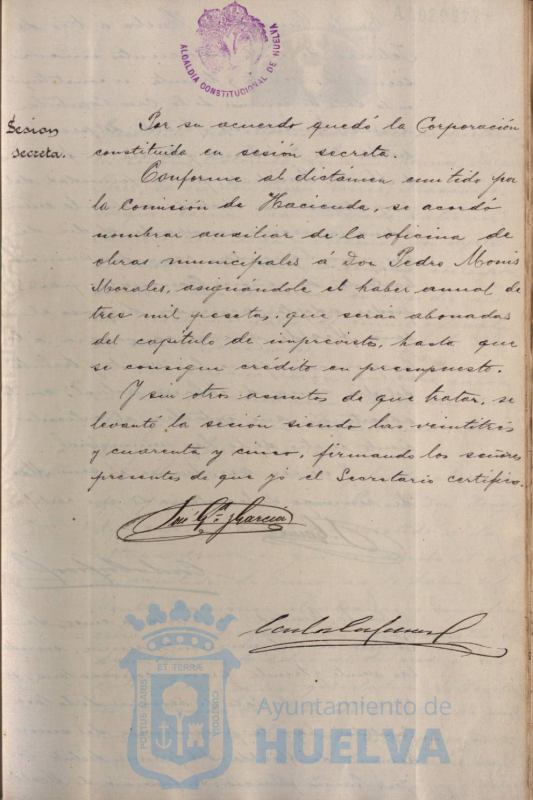 ALCALDIA CONSTITUCIONAL DE HUELVA
Sesion
secreta.
Por su acuerdo quedó la Corporación
constituida en sesión secreta.
Conforme al dictámen emitido por
la Comisión de Hacienda, se acordó
nombrar auxiliar de la oficina de
obras municipales á Don Pedro Monis
Morales, asignándole el haber anual de
tres mil pesetas, que serán abonadas
del capitulo de imprevistos, hasta que
se consigue crédito en presupuesto.
Y sin otros asuntos de que tratar, se
levantó la seción siendo las veintitrés
y cuarenta y cinco, firmando los señores
presentes de que yó el Secretario certifico.
García
ET TERRÆ
PORTUS MARIS
CUSTODIA
Ayuntamiento de
HUELVA